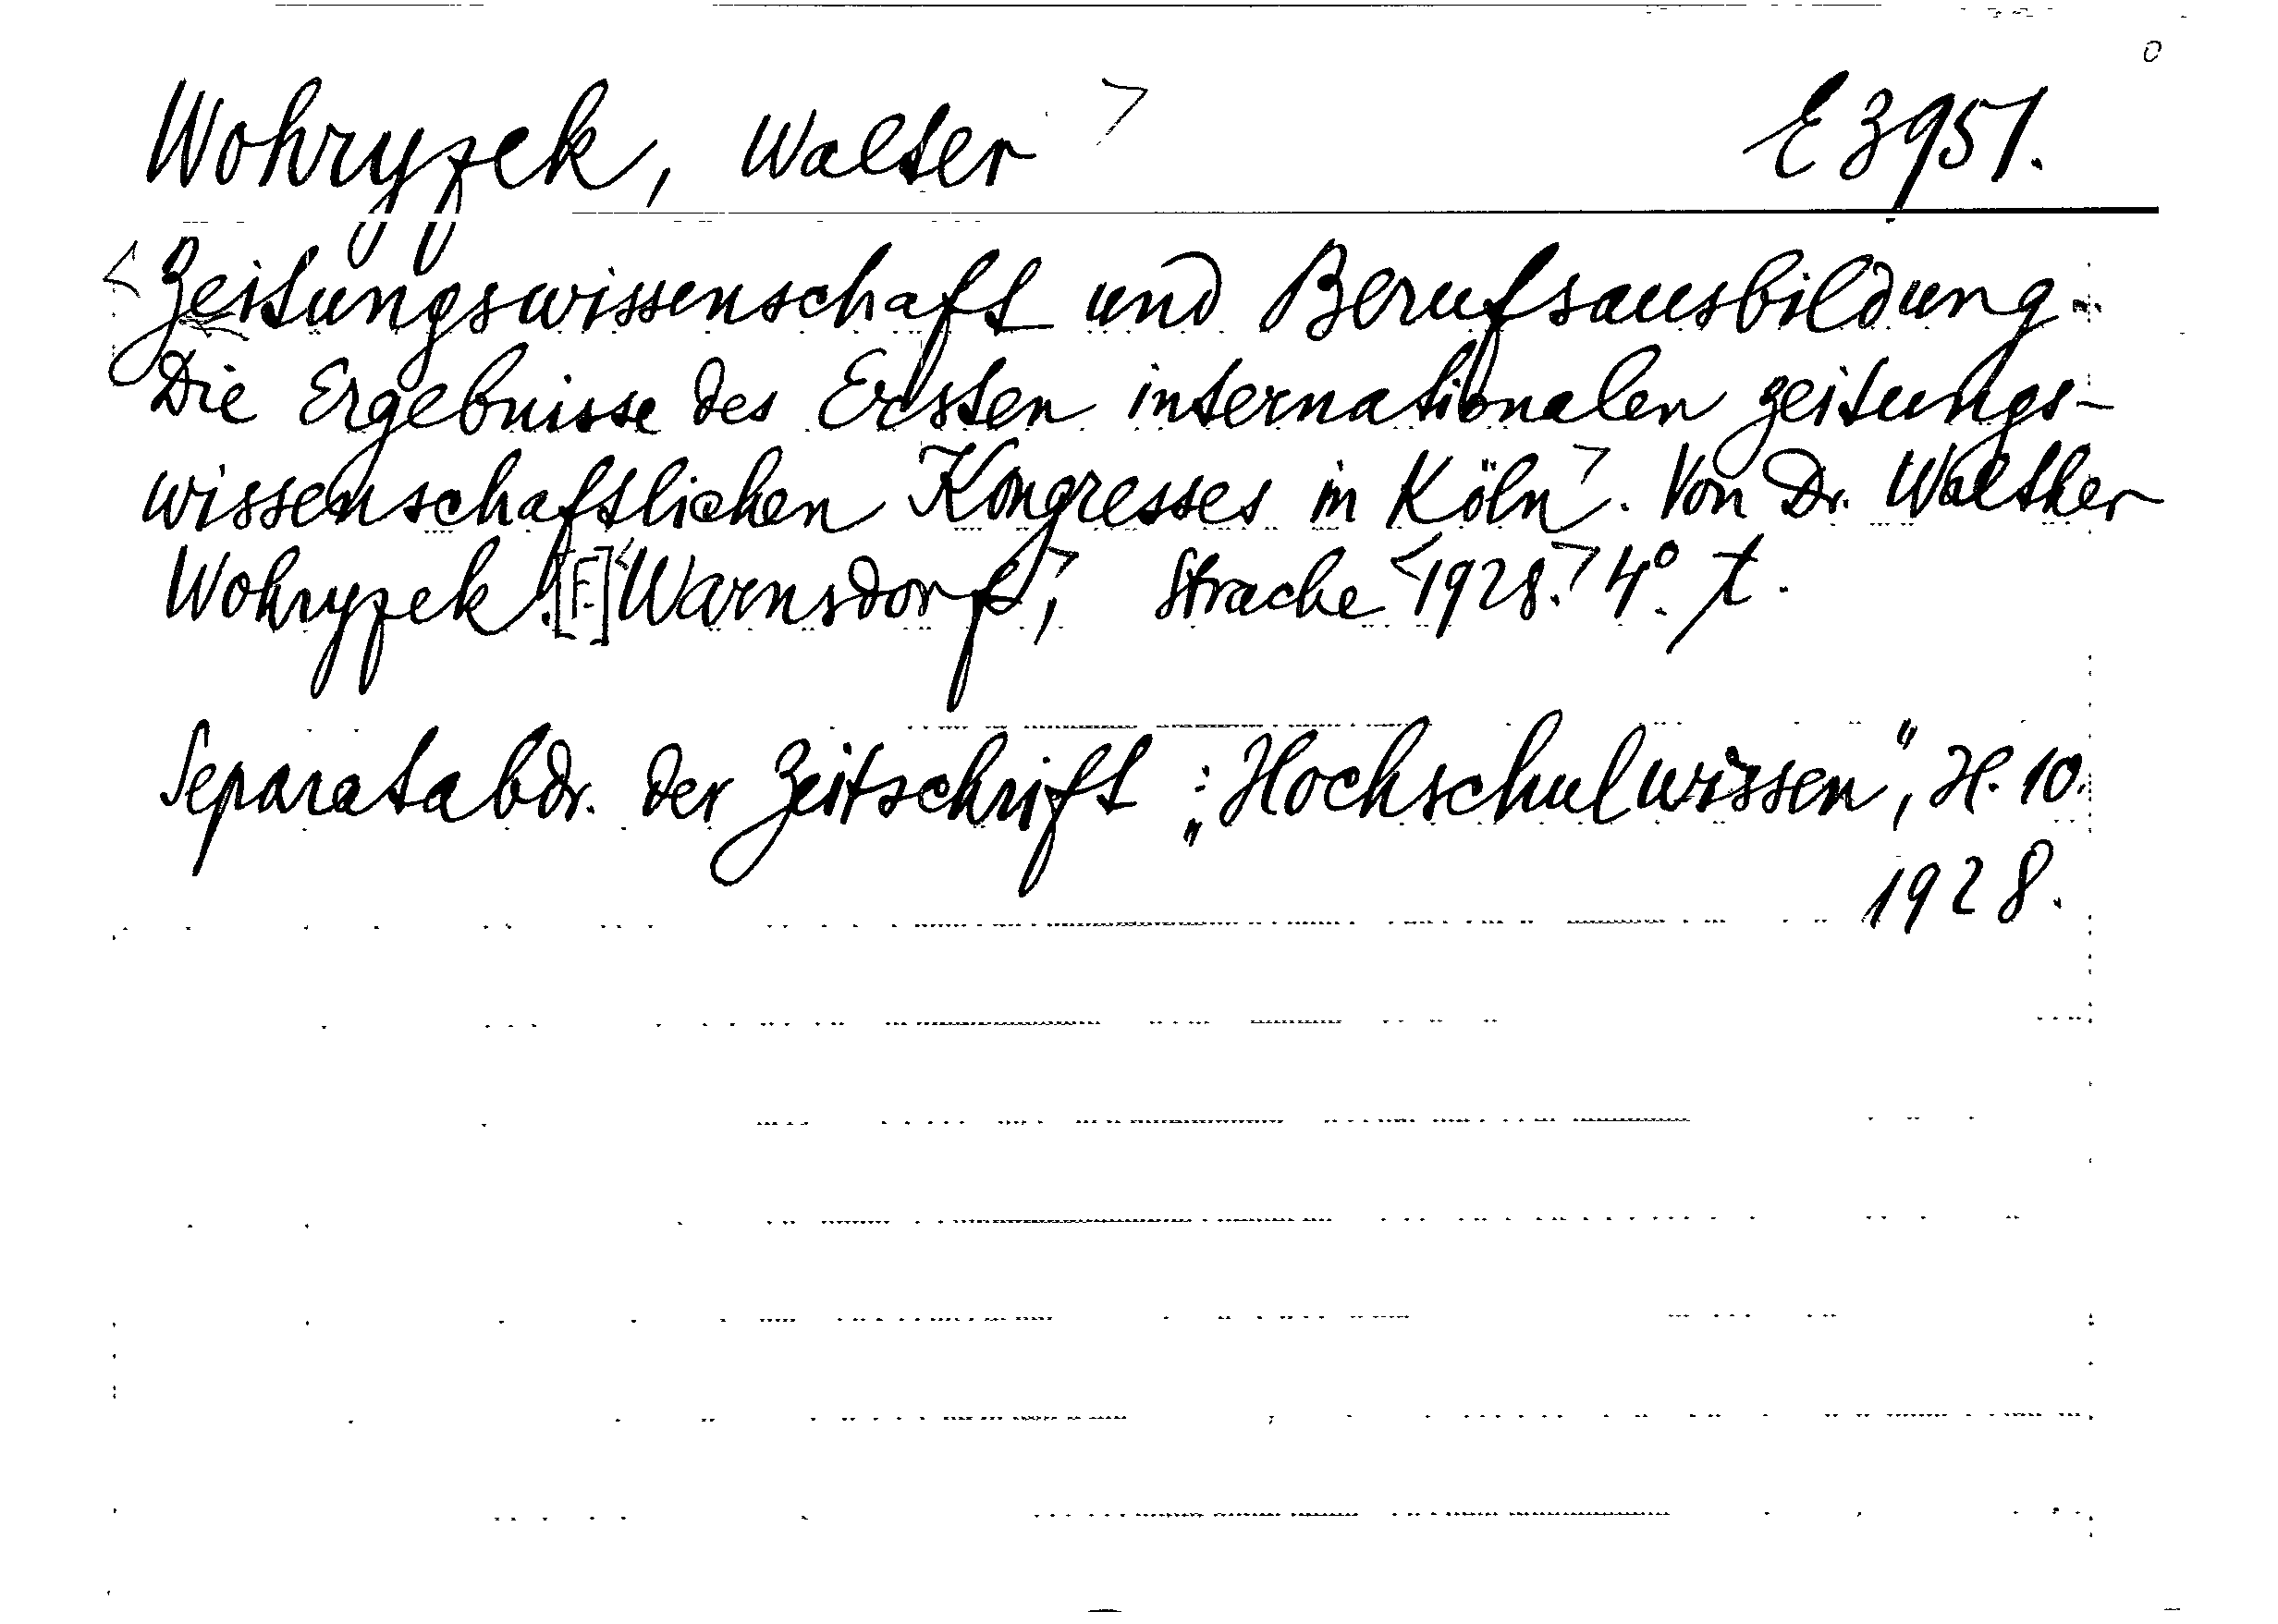 Wohryzek, Walter > E 3951.
<Zeitungswissenschaft und Berufsausbildung.
Die Ergebnisse des Ersten internationalen zeitungs-
wissenschaftlichen Kongresses in Köln>. Von Dr. Walther
Wohryzek. [F.] <Warnsdorf,> Strache <1928.> 4°. t.
Separatabdr. der Zeitschrift: „Hochschulwissen“, H. 10.
1928.